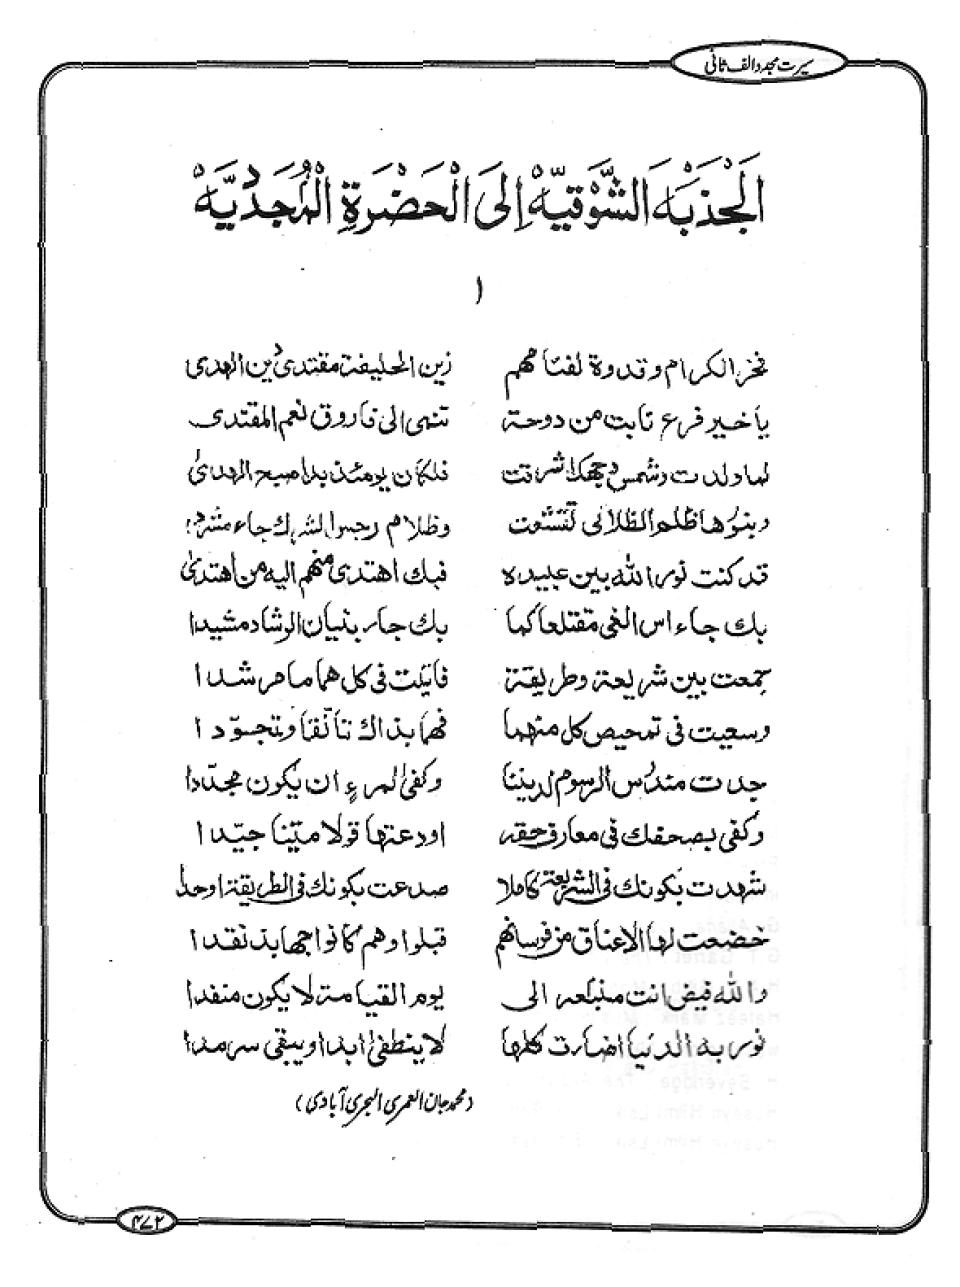 سیرت مجدد الف ثانی
اَلْجَذْبَةُ الشَّوْقِیَّةُ اِلَی الْحَضْرَةِ الْمُجَدِّیَّةْ
۱
فخر الکرام وقدوة لفئامهم زین الخلیفة مقتدیٰ دین الهدی
یاخیر فرع ثابت من دوحة تنمی الی فاروق نعم المقتدی
لما ولدت وشمس وجهك اشرقت فلکان یومئذ بدا صبح الهدیٰ
وبنورها ظلم الظلالی تقشعت وظلام رجس الشرك جاء مشردا
قد کنت نور الله بین عبیده فبك اهتدی منهم الیه من اهتدیٰ
بك جاء اس الغی مقتلعا کما بك جاء بنیان الرشاد مشیدا
جمعت بین شریعة وطریقة فاتیت فی کل هما ما مرشدا
وسعیت فی تمحیص کل منهما فهما بذاك تأنقا وتجوّدا
جددت مندرس الرسوم لدیننا وکفیٰ لمرءٍ ان یکون مجدّدا
وکفی بصحفك فی معارف حقه اودعتها قولا متینا جیّدا
شهدت بکونك فی الشریعة کاملا صدعت بکونك فی الطریقة اوحدا
خضعت لها الاعناق من فرسانهم قبلوا وهم کانوا جهابذ نقدا
والله فیض انت منبعه الی یوم القیامة لا یکون منفدا
نور به الدنیا اضاءت کلها لا ینطفیٔ ابدا ویبقی سرمدا
(محمد جان العمری البحری آبادی)
۴۷۲